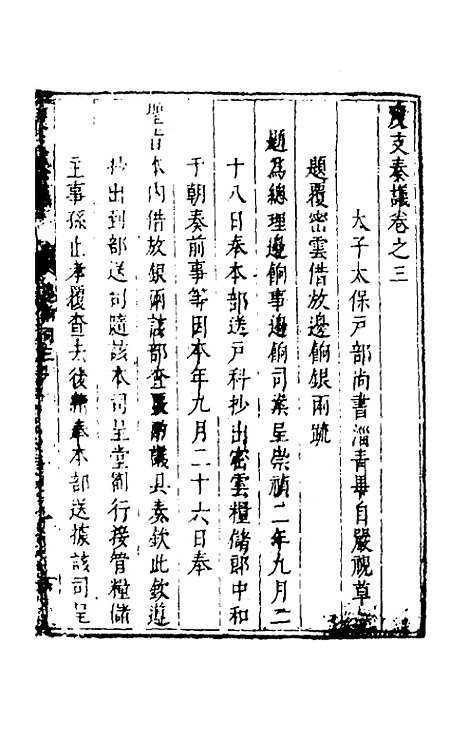 度支奏議卷之三
太子太保戶部尚書淄青畢自嚴視草
題覆密雲借放邊餉銀兩疏
題為總理邊餉事邊餉司案呈崇禎二年九月二
十八日奉本部送戶科抄出密雲糧儲郎中和
于朝奏前事等因本年九月二十六日奉
聖旨本內借放銀兩該部查覈酌議具奏欽此欽遵
抄出到部送司隨該本司呈堂劄行接管糧儲
主事孫止孝覆查去後奉本部送據該司呈